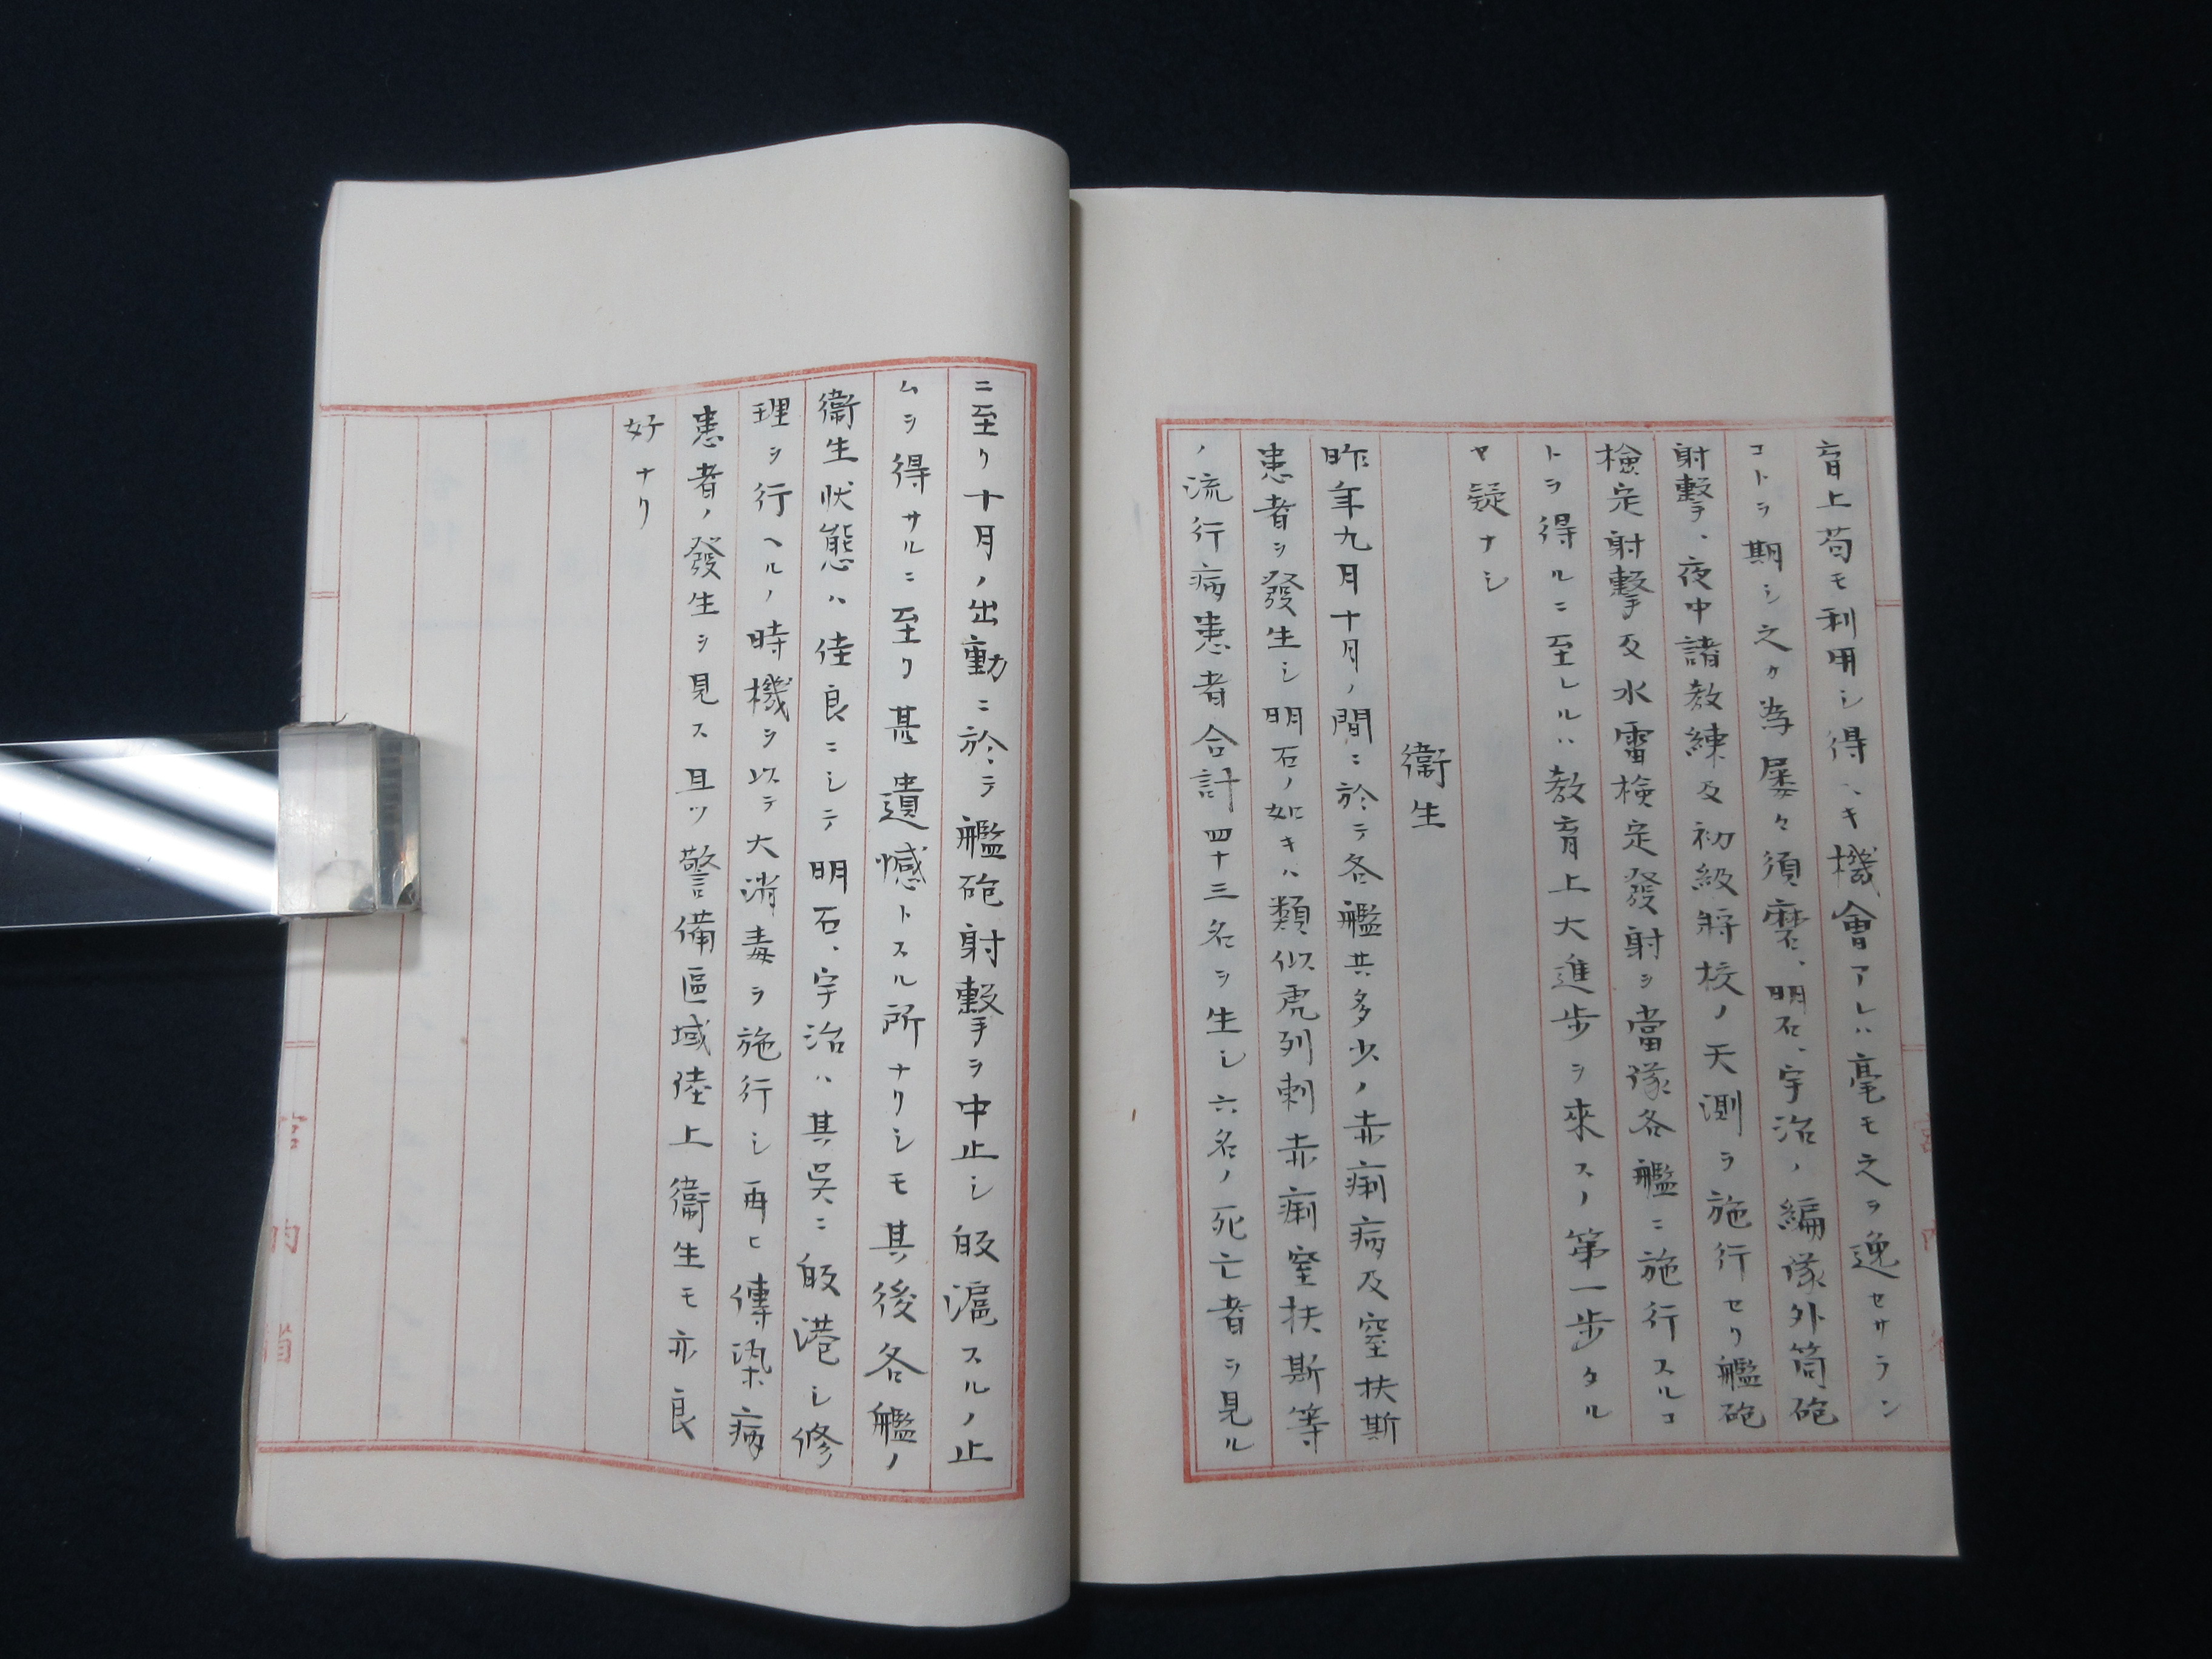 育上苟モ利用シ得ヘキ機會アレハ毫モ之ヲ逸セサラン
コトヲ期シ之カ為屡々須磨、明石、宇治ノ編隊外筒砲
射擊、夜中諸教練及初級將校ノ天測ヲ施行セリ艦砲
檢定射擊及水雷檢定發射ヲ當隊各艦ニ施行スルコ
トヲ得ルニ至レルハ教育上大進步ヲ來スノ第一步タル
ヤ疑ナシ
衞生
昨年九月十月ノ間ニ於テ各艦共多少ノ赤痢病及窒扶斯
患者ヲ發生シ明石ノ如キハ類似虎列刺赤痢窒扶斯等
ノ流行病患者合計四十三名ヲ生シ六名ノ死亡者ヲ見ル
ニ至リ十月ノ出動ニ於テ艦砲射擊ヲ中止シ皈滬スルノ止
ムヲ得サルニ至リ甚遺憾トスル所ナリシモ其後各艦ノ
衞生狀態ハ佳良ニシテ明石、宇治ハ其吳ニ皈港シ修
理ヲ行ヘルノ時機ヲ以テ大消毒ヲ施行シ再ヒ傳染病
患者ノ發生ヲ見ス且ツ警備區域陸上衞生モ亦良
好ナリ